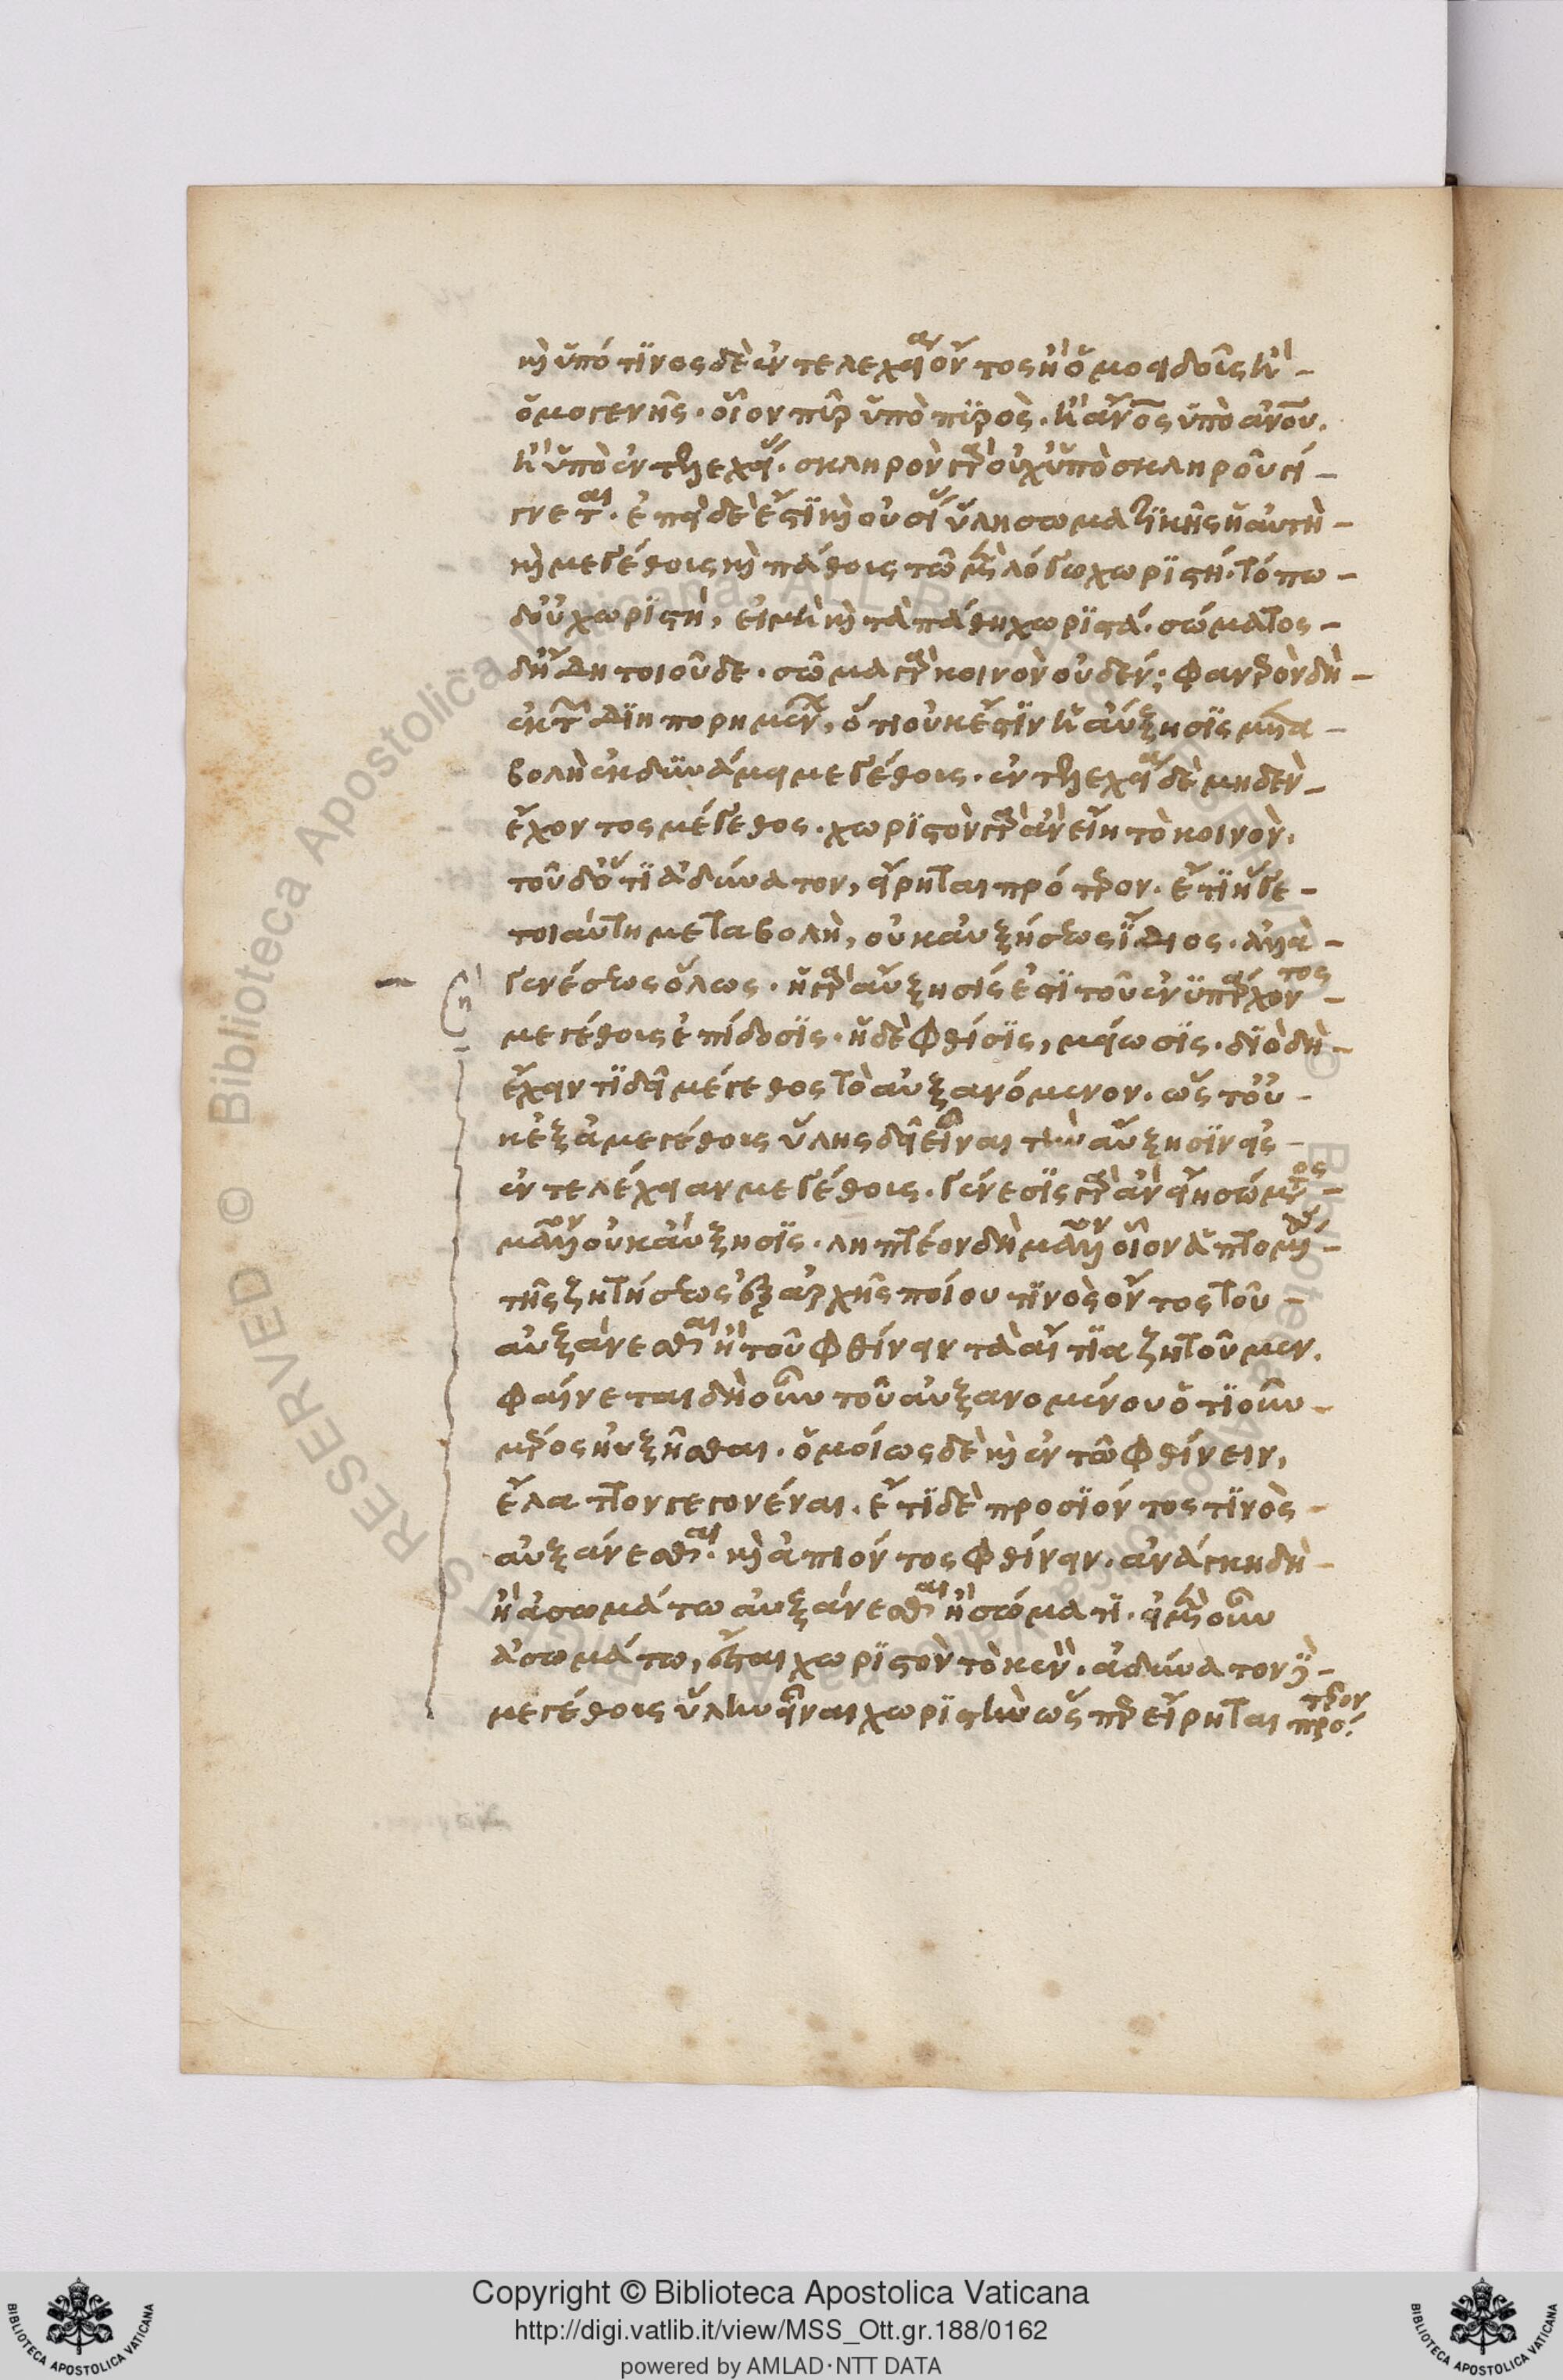 καὶ ὑπό τινος δὲ ἐντελεχείᾳ ὄντος ἢ ὁμοειδοῦς ἢ
ὁμογενοῦς. οἷον πῦρ ὑπὸ πυρὸς. ἢ ἄνος ὑπὸ ἀνου.
ἢ ὑπὸ ἐντελεχείας. σκληρὸν γὰρ οὐχ ὑπὸ σκληροῦ γί
γνεται. ἐπεὶ δὲ ἐστὶ καὶ οὐσίας ὕλη σωματικῆς ἡ αὐτὴ
καὶ μεγέθους καὶ πάθους τῶ μὲν λόγω χωριστή. τόπω
δ' οὐ χωριστὴ, εἰ μὴ καὶ τὰ πάθη χωριστά. σώματος
δ' ἤδη τοιοῦδε. σῶμα γὰρ κοινὸν οὐδέν· φανερὸν δὴ
ἐκ τῶν διηπορημένων, ὅτι οὐκ ἔστιν ἡ αὔξησις μετα
βολὴ ἐκ δυνάμει μεγέθους. ἐντελεχείᾳ δὲ μηδὲν
ἔχοντος μέγεθος. χωριστὸν γὰρ ἂν εἴη τὸ κοινὸν.
τοῦδ' ὅτι ἀδύνατον, εἴρηται πρότερον. ἔτι ἥ γε
τοιαύτη μεταβολὴ, οὐκ αὐξήσεως ἴδιος. ἀλλὰ
γενέσεως ὅλως. ἡ γὰρ αὔξησίς ἐστι τοῦ ἐνυπάρχοντος
μεγέθους ἐπίδοσις. ἡ δὲ φθίσις, μείωσις. διὸ δὴ
ἔχειν τι δεῖ μέγεθος τὸ αὐξανόμενον. ὥστ' οὐ
κ ἐξ ἀμεγέθους ὕλης δεῖ εἶναι τὴν αὔξησιν εἰς
ἐντελέχειαν μεγέθους. γένεσις γὰρ ἂν εἴη σώματος
μᾶλλον οὐκ αὔξησις. ληπτέον δὴ μᾶλλον οἷον ἁπτομένοις
τῆς ζητήσεως ἐξ ἀρχῆς ποίου τινὸς ὄντος τοῦ
αὐξάνεσθαι ἢ τοῦ φθίνειν τὰ αἴτια ζητοῦμεν.
φαίνεται δὴ οὖν τοῦ αὐξανομένου ὁτιοῦν
μέρος ηὐξῆσθαι. ὁμοίως δὲ καὶ ἐν τῶ φθίνειν,
ἔλαττον γεγονέναι. ἔτι δὲ προσιόντος τινὸς
αὐξάνεσθαι. καὶ ἀπιόντος φθίνειν. ἀνάγκη δὴ
ἢ ἀσωμάτω αὐξάνεσθαι ἢ σώματι. εἰ μὲν οὖν
ἀσωμάτω, ἔσται χωριστὸν τὸ κενὸν. ἀδύνατον δὲ
μεγέθους ὕλην εἶναι χωριστὴν ὥσπερ εἴρηται πρότερον